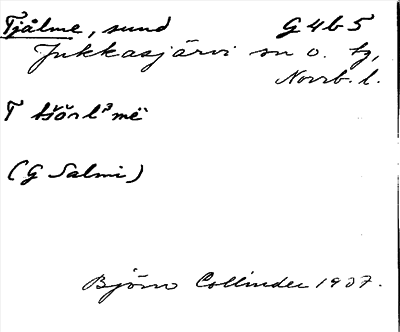 Tjålme, sund G4b5
Jukkasjärvi sn o. tg,
Norrb. l.
T
(G Salmi)
Björn Collinder 1937.